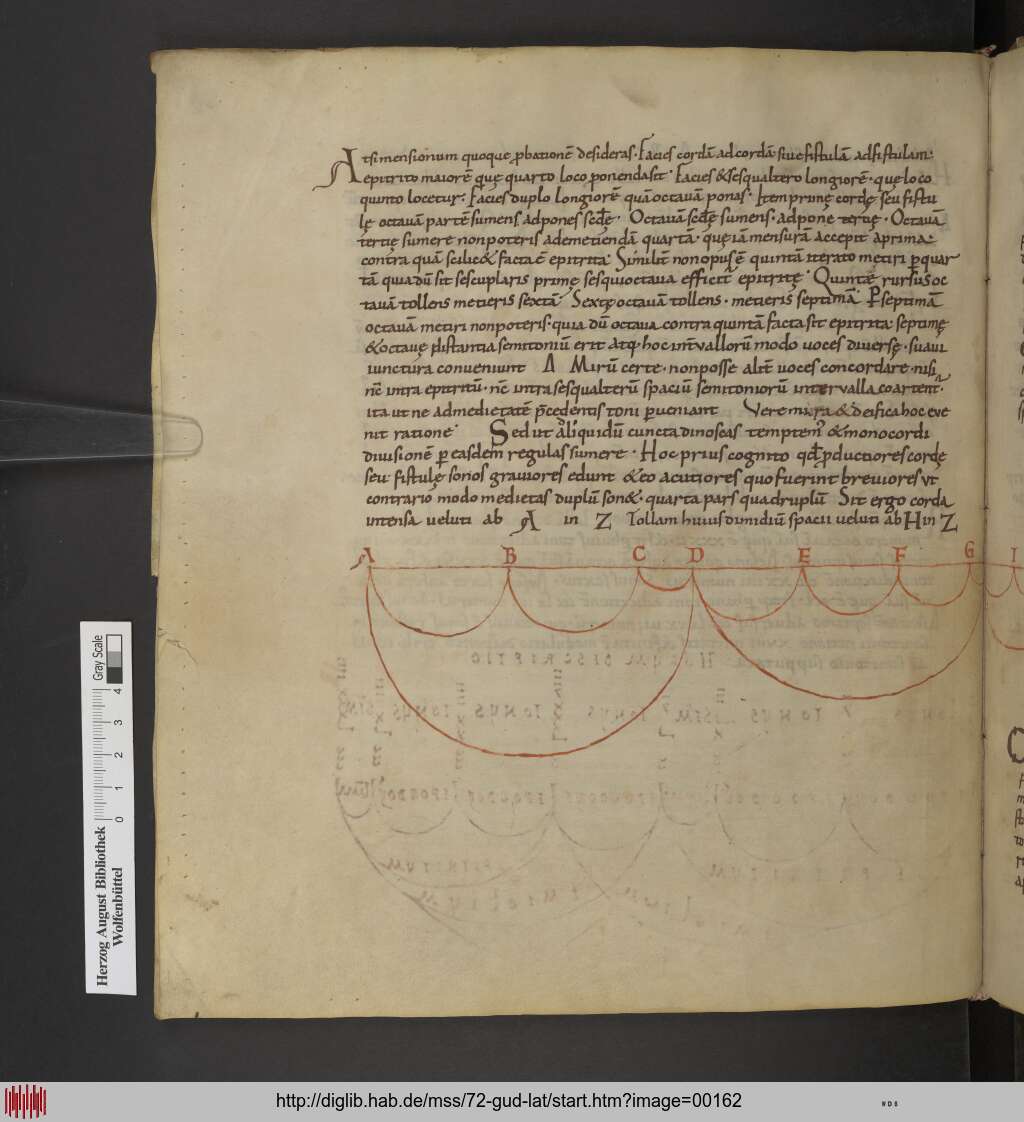 At si mensionum quoque ꝓbationē desideras· Facies cordā ad cordā· siue fistulā ad fistulam·
epitrito maiorē quę quarto loco ponenda sit· Facies & sesqualtero longiorē· quę loco
quinto locetur· Facies duplo longiorē quā octauā ponas· Item primę cordę seu fistu
lę octauā partē sumens adpones scd̄ę· Octauā scd̄ę sumens· adpone tertię· Octauā
tertię sumere non poteris ad emetiendā quartā· quę iā mensurā accepit a prima·
contra quā scilic& facta ē epitrita· Similit̄ non opus ē quintā iterato metiri ꝑ quar
tā quia dū sit sescuplaris primę sesquioctaua efficit̄ epitritę· Quintę rursus oc
tauā tollens metieris sextā Sextę octauā tollens· metieris septimā· ꝑ septimā
octauā metiri non poteris· quia dū octaua contra quintā facta sit epitrita· septimę
& octauę distantia semitoniū erit atq· hoc int̄uallorū modo uoces diuersę· suaui
iunctura conueniunt A Mirū certe· non posse alit̄ uoces concordare· nisi
nc̄ intra epitritū· nc̄ intra sesqualterū spaciū semitoniorū interualla coartent·
ita ut ne ad medietatē p̄cedentis toni ꝑueniant Vere mira & deifica hoc eue
nit ratione· Sed ut aliquidū cuncta dinoscas temptem & monocordi
diuisionē ꝑ easdem regulas sumere· Hoc prius cognito qd̄ ꝓductiores cordę
seu fistulę sonos grauiores edunt & eo acutiores quo fuerint breuiores ut
contrario modo medietas duplū son&· quarta pars quadruplū Sit ergo corda
intensa ueluti ab A in Z Tollam huius dimidiū spacii ueluti ab H in Z
A B C D E F G I
Herzog August Bibliothek
Wolfenbüttel
0 1 2 3 4
Gray Scale
http://diglib.hab.de/mss/72-gud-lat/start.htm?image=00162
WDB